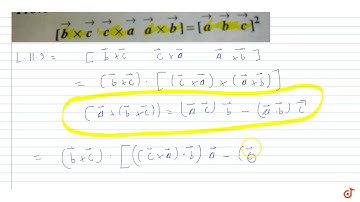 [b⃗ × c⃗  c⃗ × a⃗  a⃗ × b⃗] = [a⃗  b⃗  c⃗]²
L.H.S = [ b⃗ × c⃗  c⃗ × a⃗  a⃗ × b⃗ ]
= (b⃗ × c⃗) · [ (c⃗ × a⃗) × (a⃗ × b⃗) ]
(a⃗ × (b⃗ × c⃗)) = (a⃗ c⃗) b⃗ − (a⃗ b⃗) c⃗
= (b⃗ × c⃗) · [ ((c⃗ × a⃗) · b⃗) a⃗ − (